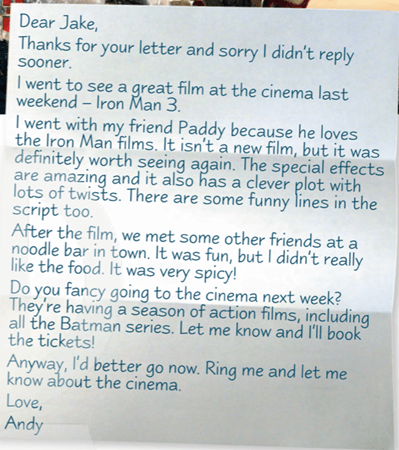 Dear Jake,
Thanks for your letter and sorry I didn't reply
sooner.
I went to see a great film at the cinema last
weekend – Iron Man 3.
I went with my friend Paddy because he loves
the Iron Man films. It isn't a new film, but it was
definitely worth seeing again. The special effects
are amazing and it also has a clever plot with
lots of twists. There are some funny lines in the
script too.
After the film, we met some other friends at a
noodle bar in town. It was fun, but I didn't really
like the food. It was very spicy!
Do you fancy going to the cinema next week?
They're having a season of action films, including
all the Batman series. Let me know and I'll book
the tickets!
Anyway, I'd better go now. Ring me and let me
know about the cinema.
Love,
Andy